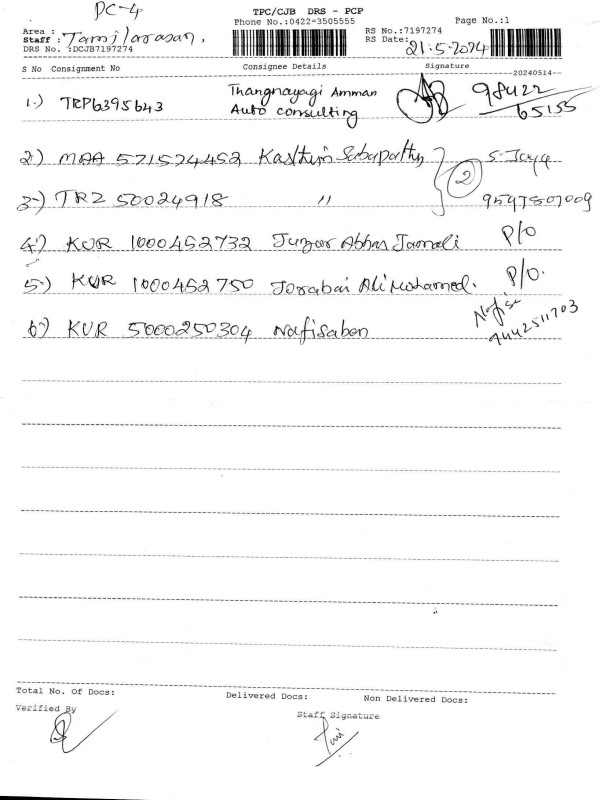 PC-4
TPC/CJB DRS - PCP
Phone No.:0422-3505555
Page No.:1
Area :
Staff : Tamilarasan,
DRS No. :DCJB7197274
RS No.:7197274
RS Date: 21-5-2024
S No Consignment No Consignee Details Signature
--20240514--
1.) TRP6395643 Thangnayagi Amman Auto consulting 98422 65155
2.) MAA 571574452 Kasthuri Sabapathy S. Jaya
3.) TRZ 50024918 " (2)
4.) KUR 1000452732 Juzar Abbas Jamali P/O
5.) KUR 1000452750 Jorabai Ali Mohamed. P/O.
6.) KUR 5000250304 Nafisaben Nafisa 9442511703
Total No. Of Docs: Delivered Docs: Non Delivered Docs:
Verified By Staff Signature